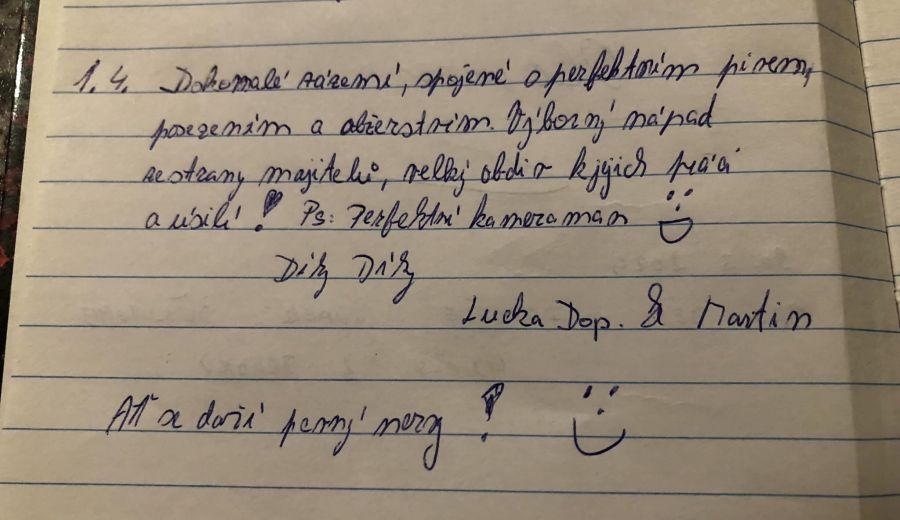 1.4. Dokonalé zázemí, spojené s perfektním pivem,
posezením a občerstvím. Výborný nápad
ze strany majitelů, velký obdiv k jejich práci
a úsilí! Ps: Perfektní kameraman
Díky Díky
Lucka Dop. & Martin
Ať se daří pevný nervy!